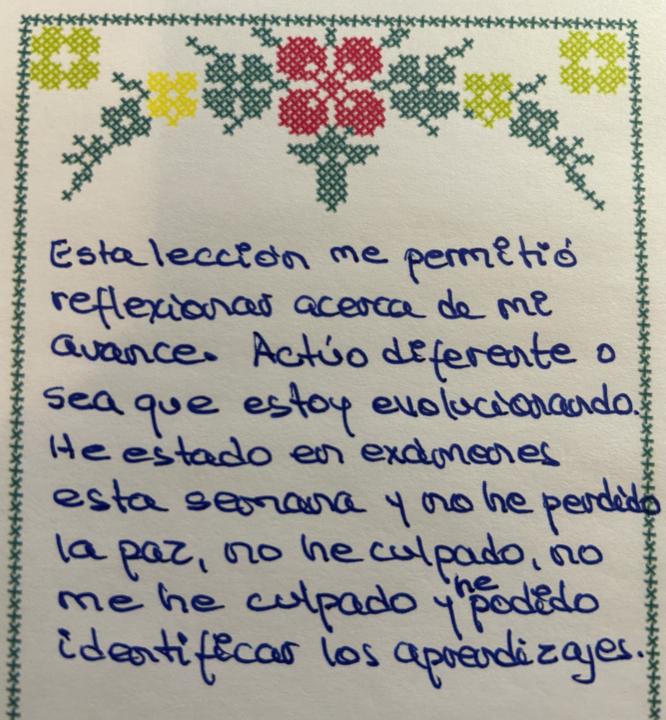 Esta lección me permitió
reflexionar acerca de mi
avance. Actúo diferente o
sea que estoy evolucionando.
He estado en exámenes
esta semana y no he perdido
la paz, no he culpado, no
me he culpado y he podido
identificar los aprendizajes.